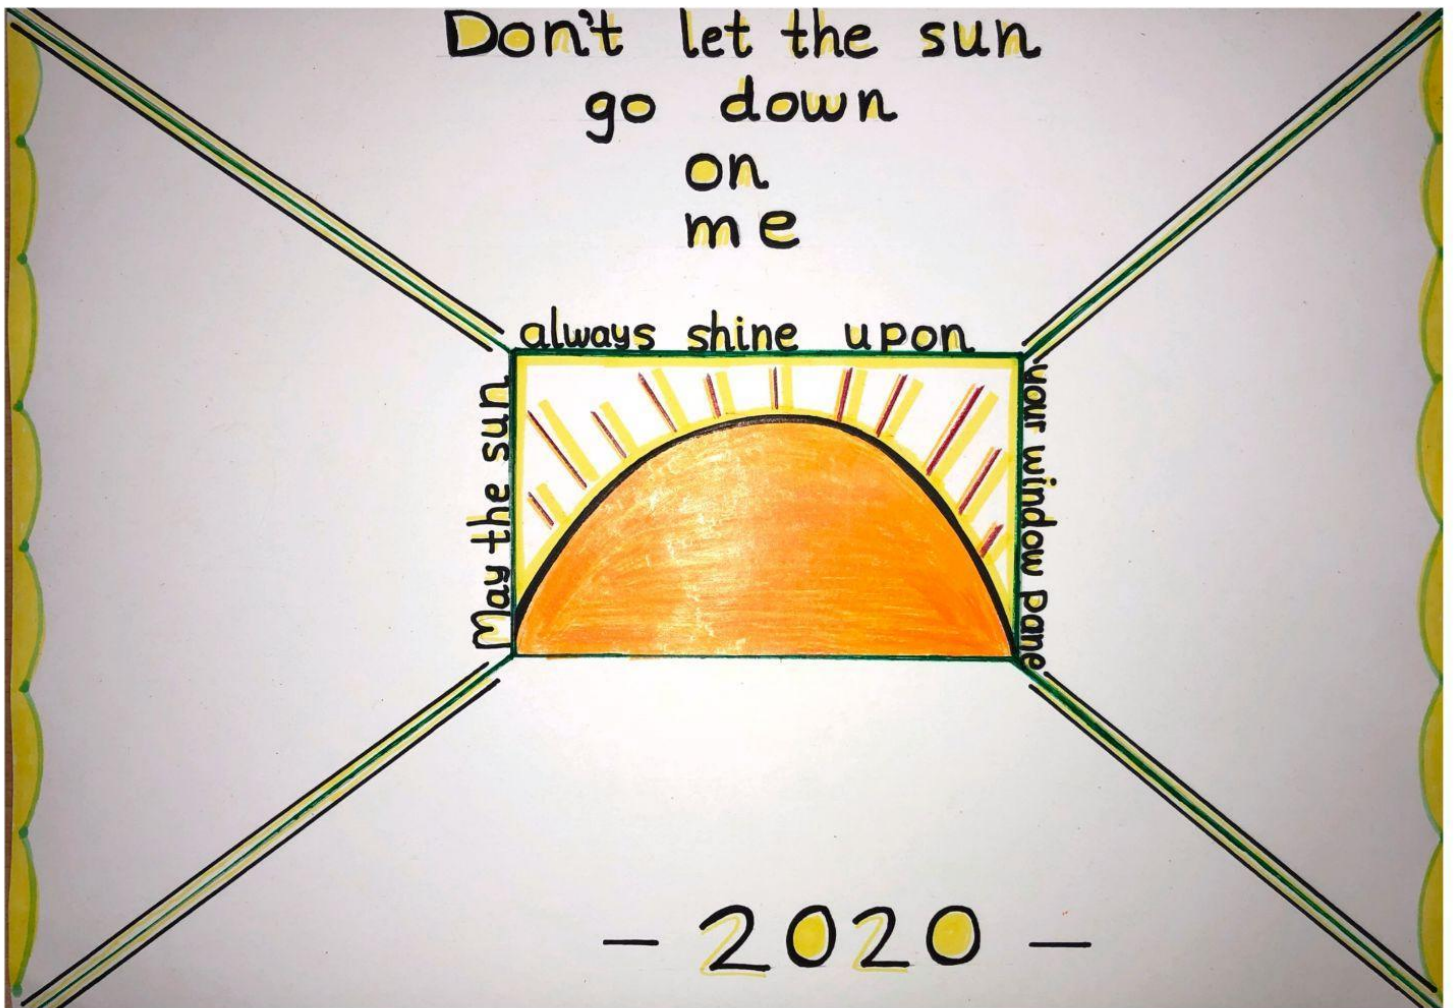 Don't let the sun
go down
on
me
May the sun
always shine upon
your window pane
- 2020 -